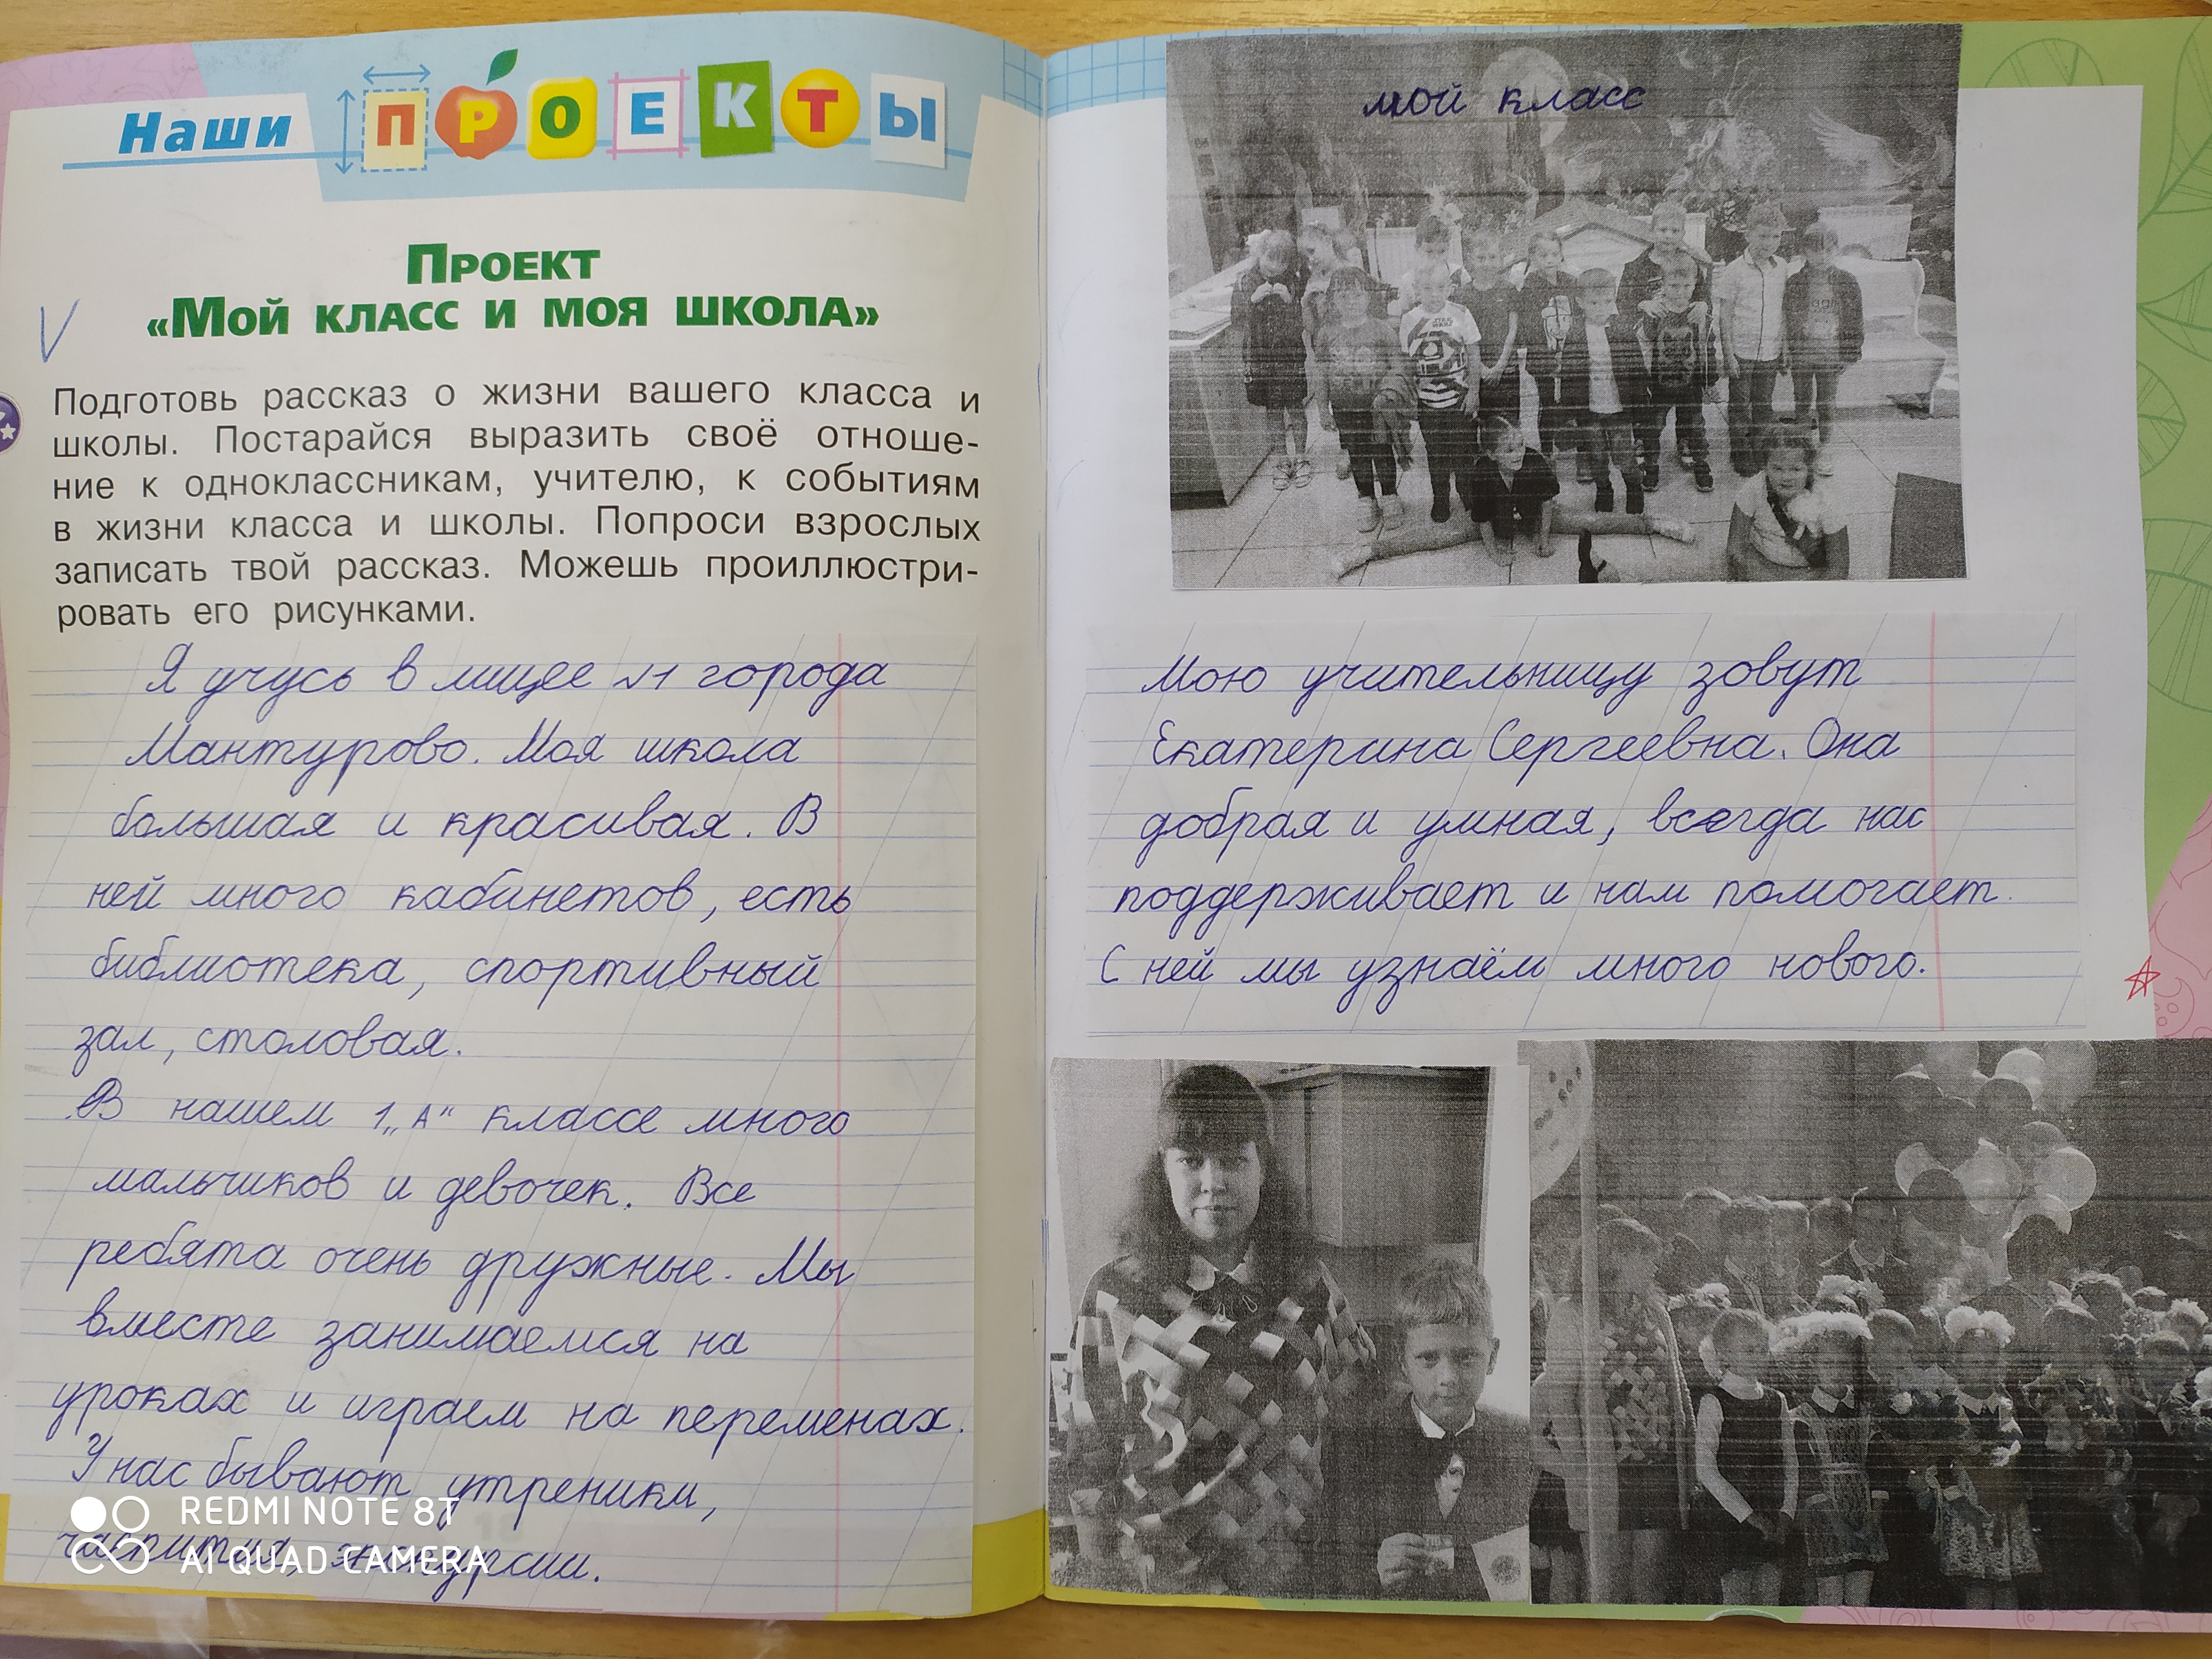 Наши ПРОЕКТЫ
Проект
«Мой класс и моя школа»
Подготовь рассказ о жизни вашего класса и
школы. Постарайся выразить своё отноше-
ние к одноклассникам, учителю, к событиям
в жизни класса и школы. Попроси взрослых
записать твой рассказ. Можешь проиллюстри-
ровать его рисунками.
Я учусь в лицее №1 города
Мантурово. Моя школа
большая и красивая. В
ней много кабинетов, есть
библиотека, спортивный
зал, столовая.
В нашем 1 „А“ классе много
мальчиков и девочек. Все
ребята очень дружные. Мы
вместе занимаемся на
уроках и играем на переменах.
У нас бывают утреники,
чаепития, экскурсии.
REDMI NOTE 8T
AI QUAD CAMERA
мой класс
Мою учительницу зовут
Екатерина Сергеевна. Она
добрая и умная, всегда нас
поддерживает и нам помогает.
С ней мы узнаём много нового.